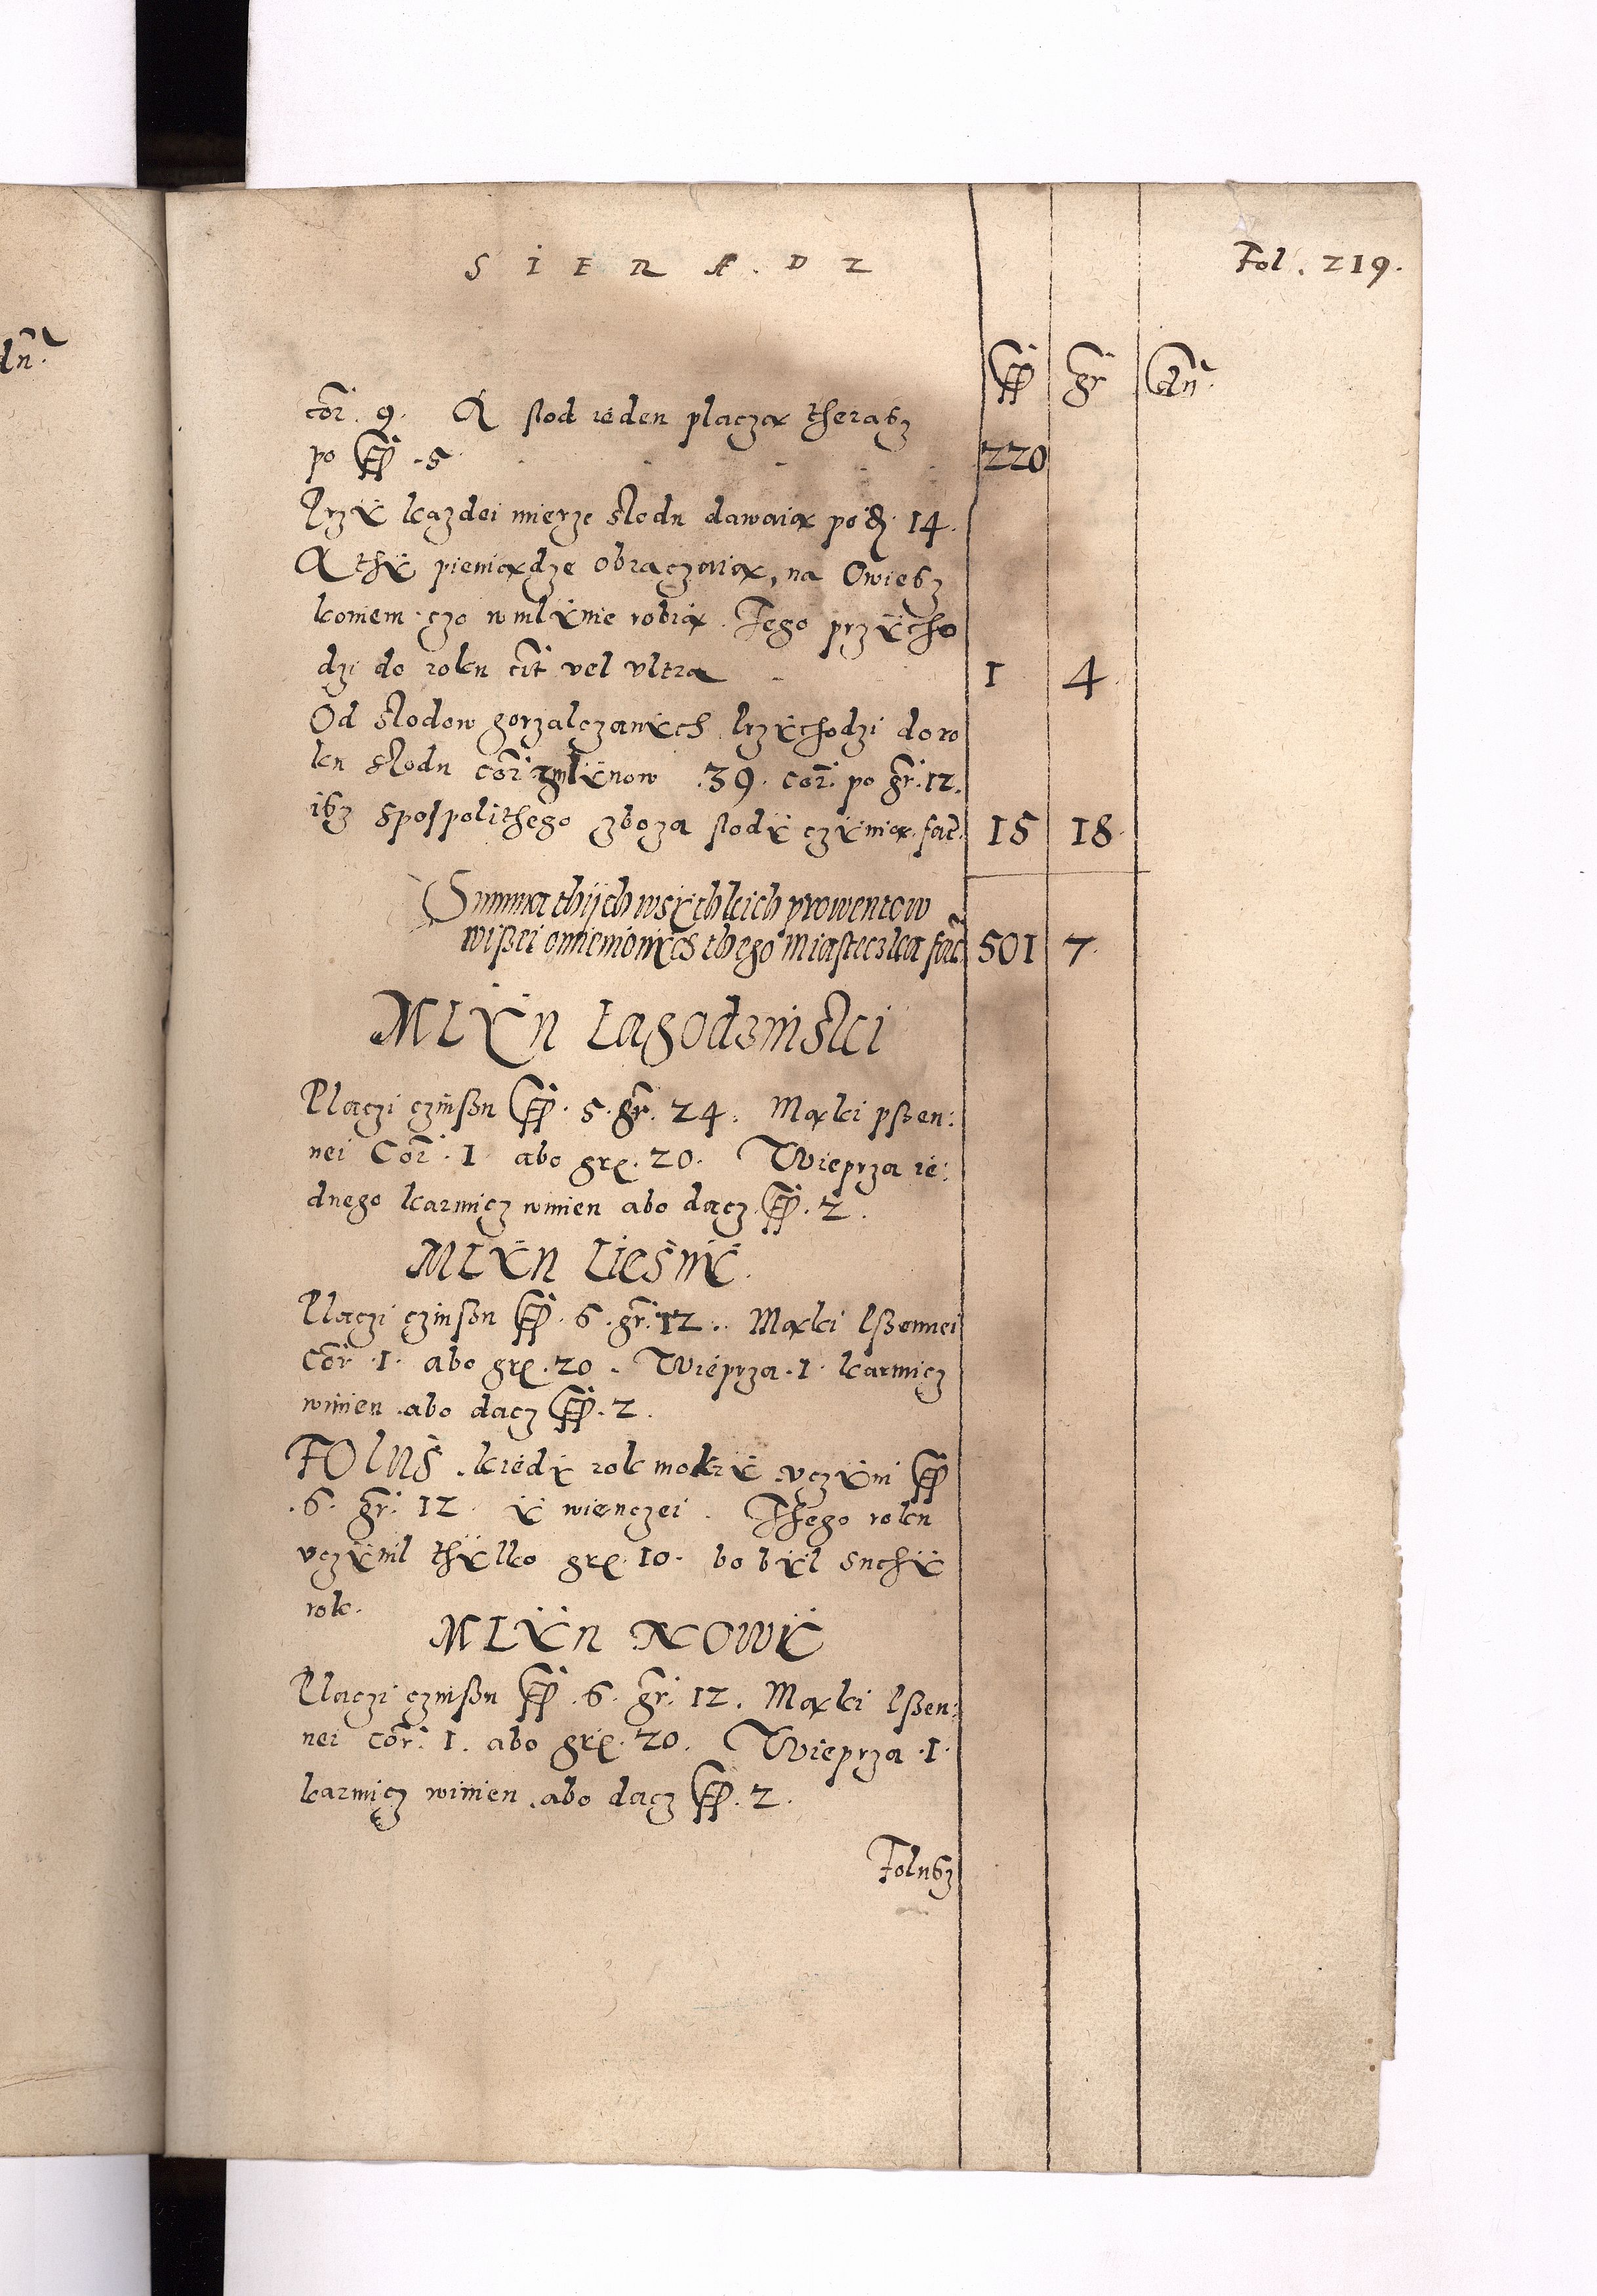 S I E R A D Z
Fol. 219.
fl gr dn
cor. 9. A slod ieden placzą therasz
po fl .5 220
Przÿ kazdei mierze slodu dawaią po d. 14.
A thÿ pieniądze obraczaią, na Owiesz
koniem czo w mlÿnie robią. Tego przÿcho
dzi do roku cit vel vltra 1 4
Od slodow gorzalczanÿch Przÿchodzi do ro
ku slodu cor zmlÿnow .39. cor. po gr. 12.
isz spospolithego zboza slodÿ czÿnią. fac. 15 18
Summa thÿch wsÿthkich prowentow
wiszei omienionÿch thego miasteczka fac 501 7.
MLYN Łagodzinski
Placzi czinszu fl. 5. gr. 24. Mąki pszen:
nei Cor. 1 abo grę. 20. Wieprza ie:
dnego karmicz winien abo dacz fl. 2.
MLYN Liesnÿ.
Placzi czinszu fl. 6. gr. 12. Mąki Pszennei
Cor .1. abo grę. 20. Wieprza .1. karmicz
winien abo dacz fl. 2.
FOLUS. kiedÿ rok mokrÿ vczÿni fl
.6. gr. 12 ÿ wienczei. Thego roku
vczÿnil thÿlko grę. 10. bo bÿl suchÿ
rok.
MLYN NOWY
Placzi czinszu fl. 6. gr. 12. Mąki Pszen:
nei Cor. 1. abo grę. 20. Wieprza .1.
karmicz winien abo dacz fl. 2.
Folusz
dn.